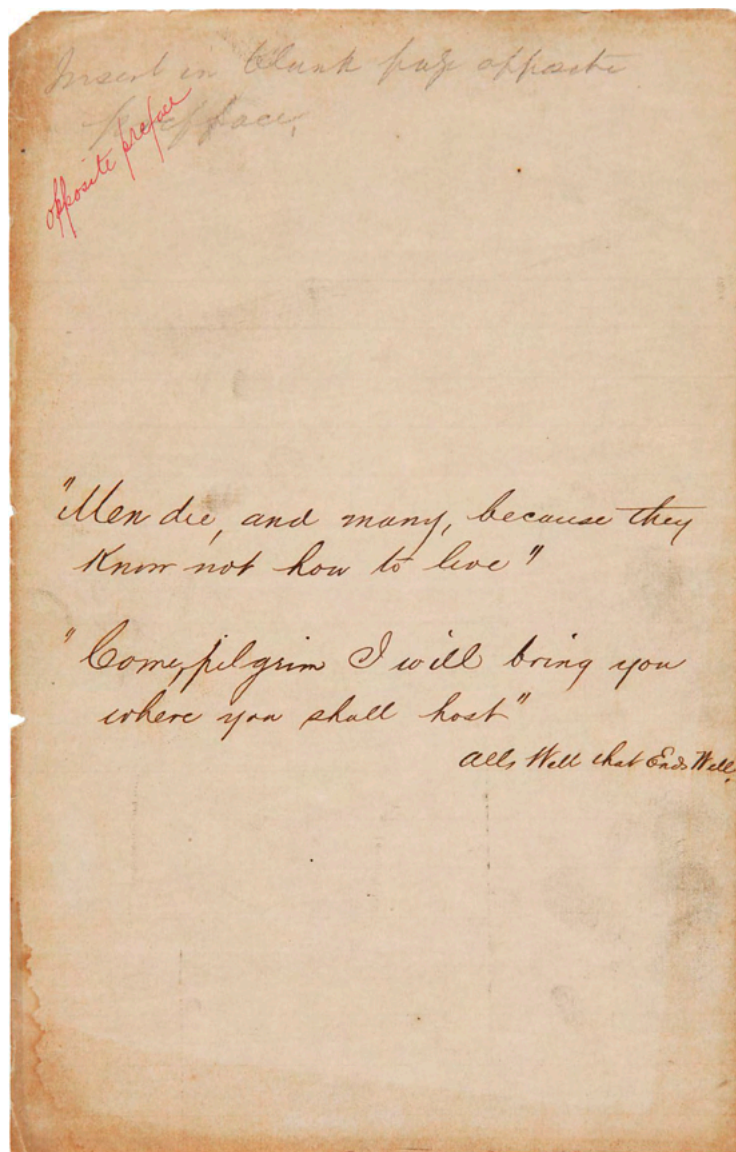 Insert in blank page opposite
preface,
opposite preface
"Men die, and many, because they
know not how to live"
"Come, pilgrim I will bring you
where you shall host"
Alls Well that Ends Well.